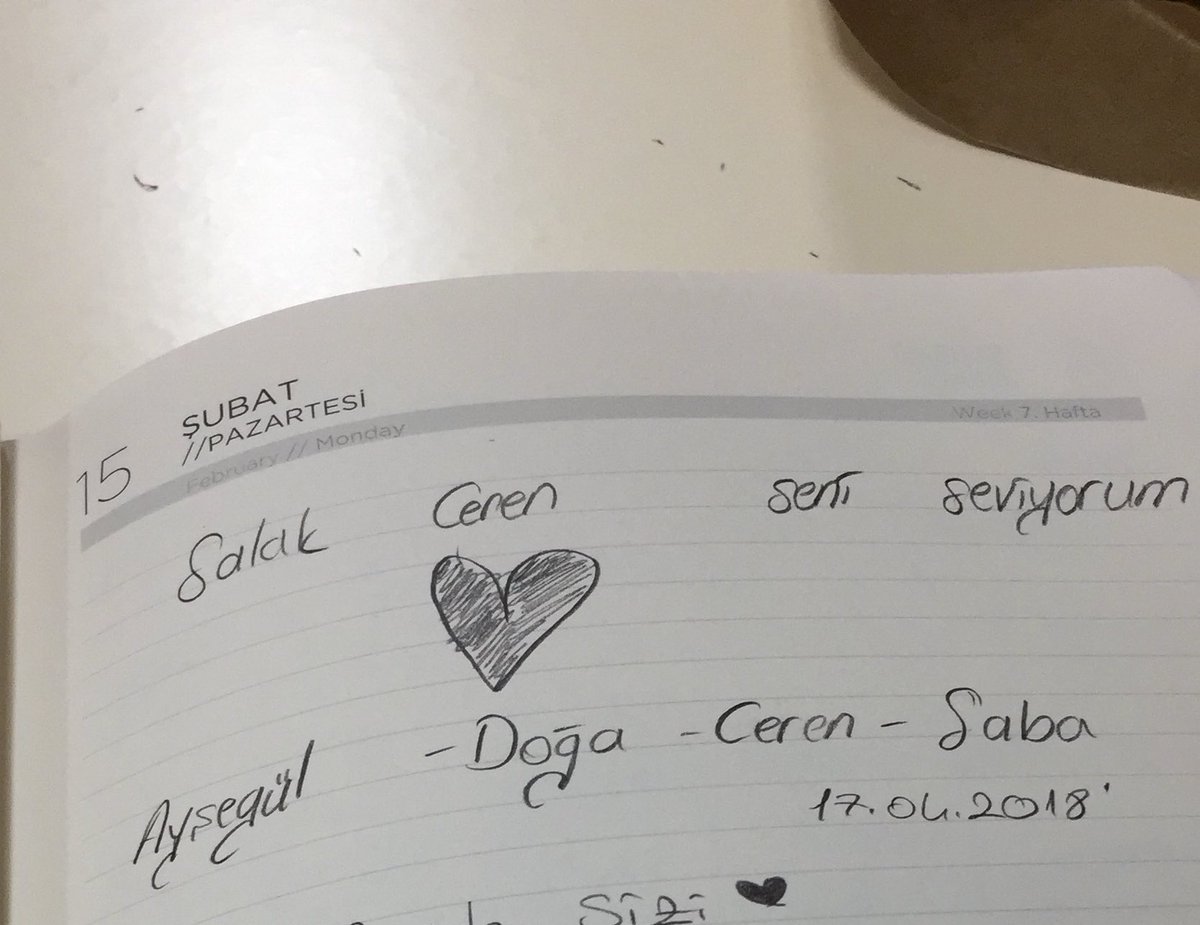 15 ŞUBAT
//PAZARTESİ
February // Monday
Week 7. Hafta
Salak Ceren seni seviyorum
Ayşegül - Doğa - Ceren - Saba
17.04.2018
sizi